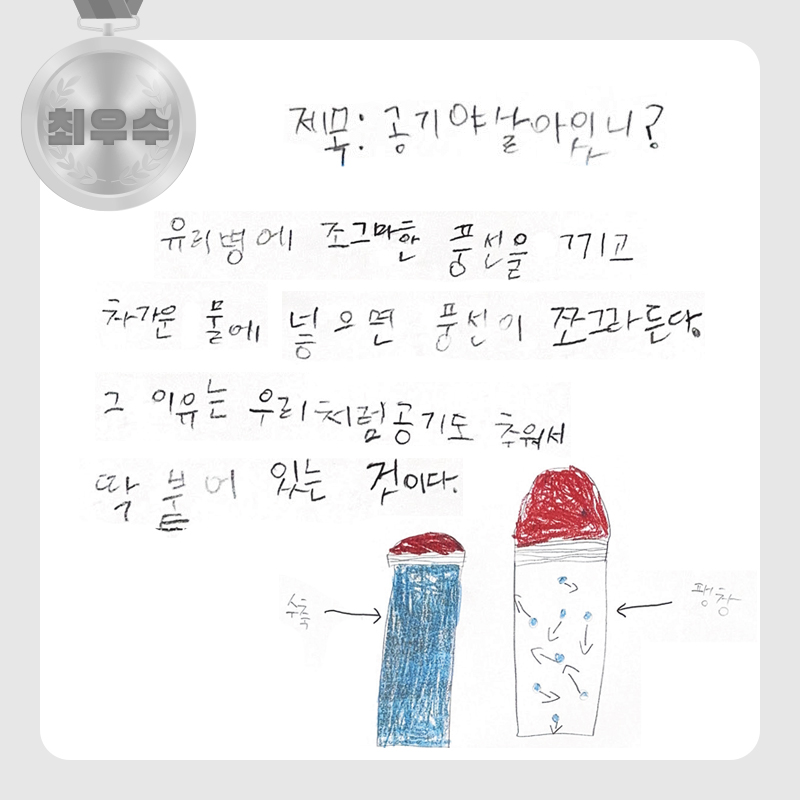 최우수
제목: 공기야 살아있니?
유리병에 조그마한 풍선을 끼고
차가운 물에 넣으면 풍선이 쪼그라든다.
그 이유는 우리처럼 공기도 추워서
딱 붙어 있는 것이다.
수축
팽창